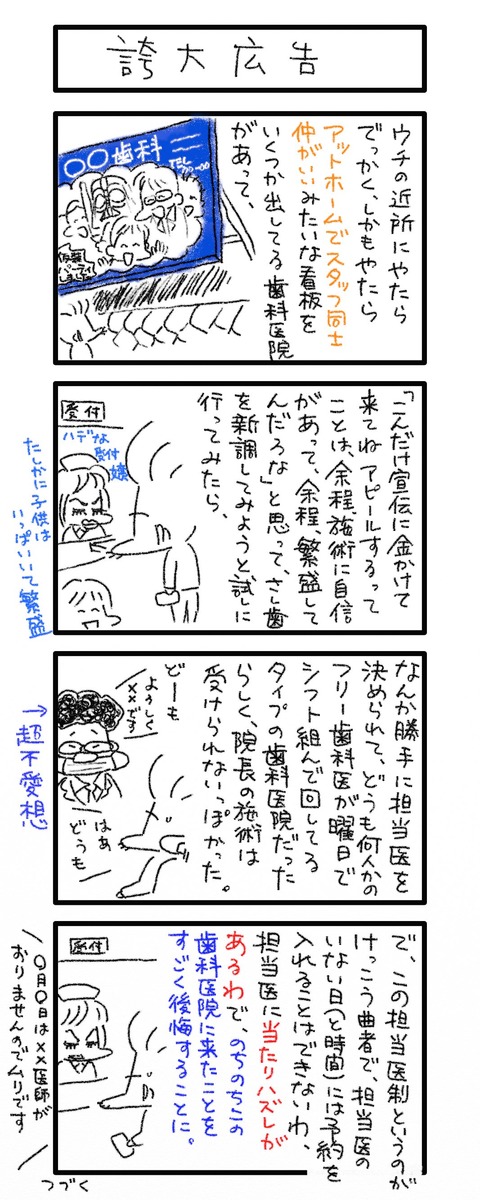 誇大広告
ウチの近所にやたら
でっかく、しかもやたら
アットホームでスタッフ同士
仲がいいみたいな看板を
いくつか出してる歯科医院
があって、
〇〇歯科
TEL
「こんだけ宣伝に金かけて
来てねアピールするって
ことは、余程、施術に自信
があって、余程、繁盛して
んだろな」と思って、さし歯
を新調してみようと試しに
行ってみたら、
受付
ハデな
受付
嬢
たしかに子供は
いっぱいいて繁盛
なんか勝手に担当医を
決められて、どうも何人かの
フリー歯科医が曜日で
シフト組んで回してる
タイプの歯科医院だった
らしく、院長の施術は
受けられないっぽかった。
どーも
よろしく
××です
はあ
どうも
→超不愛想
で、この担当医制というのが
けっこう曲者で、担当医の
いない日(と時間)には予約を
入れることはできないわ、
担当医に当たりハズレが
あるわで、のちのちこの
歯科医院に来たことを
すごく後悔することに。
受付
〇月〇日は××医師が
おりませんのでムリです
つづく